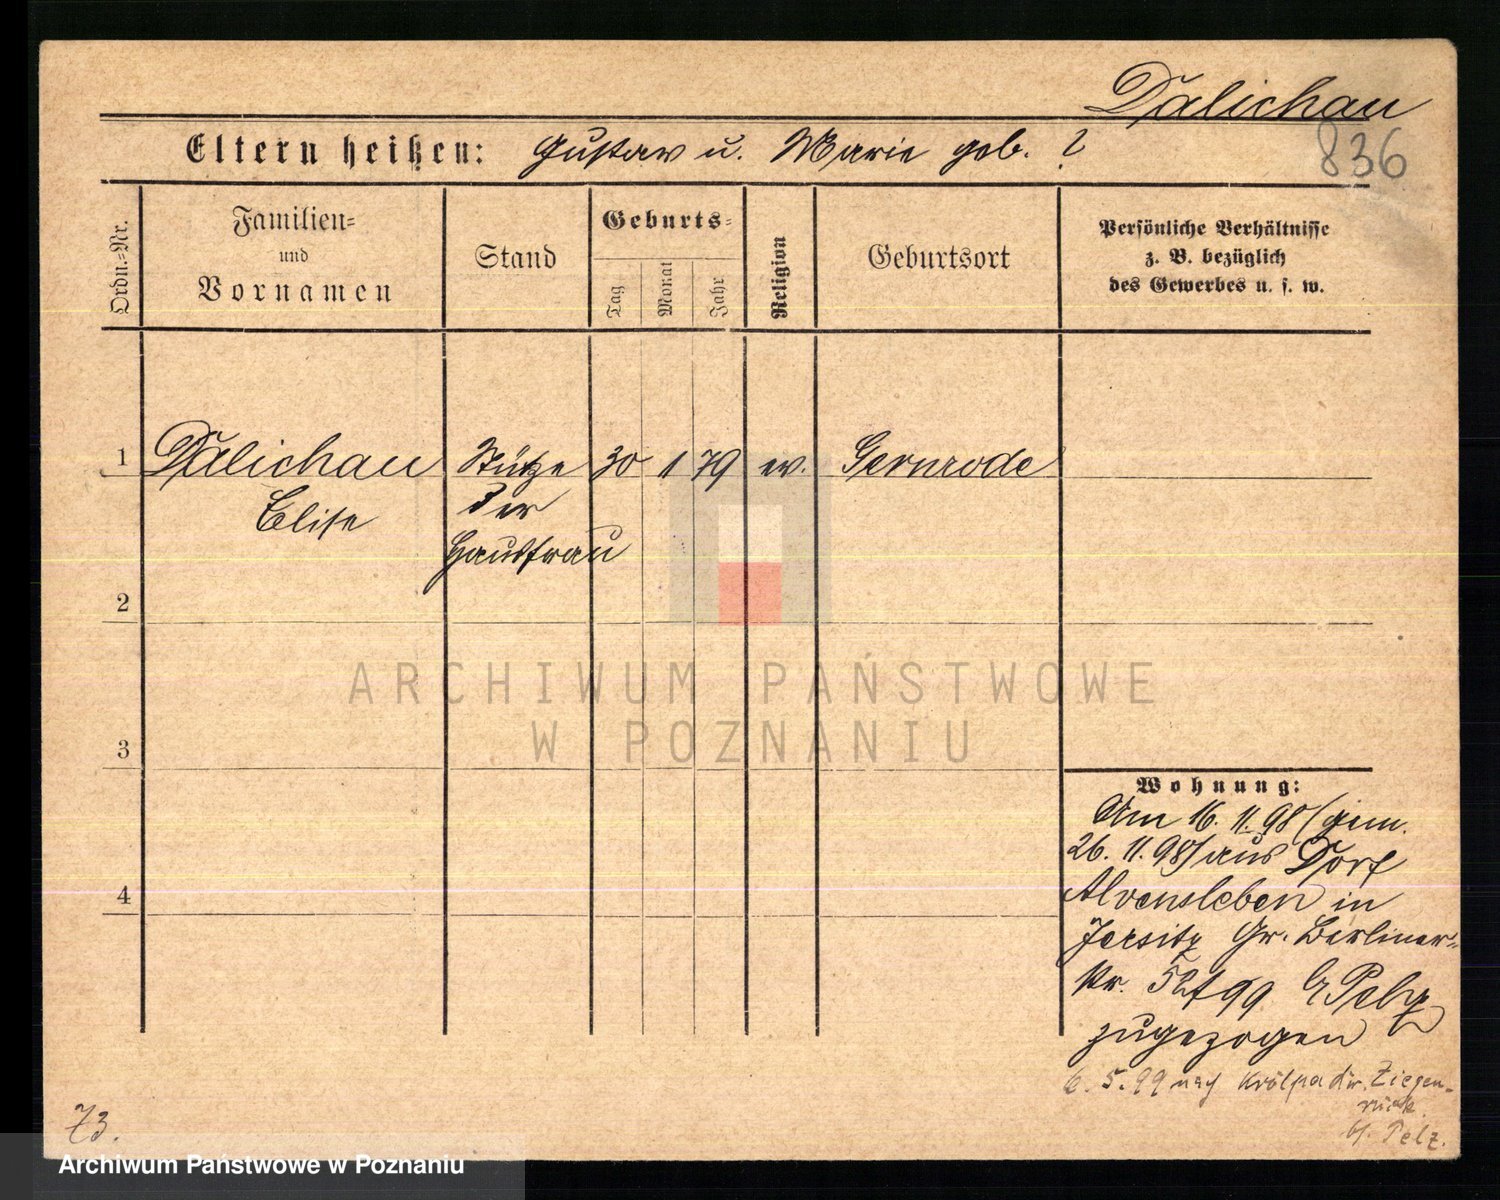 Dalichau
836
Eltern heißen: Gustav u. Marie geb. ?
Ordn.=Nr.
Familien=
und
Vornamen
Stand
Geburts=
Tag
Monat
Jahr
Religion
Geburtsort
Persönliche Verhältnisse
z. B. bezüglich
des Gewerbes u. s. w.
1 Dalichau Stütze 30 1 79 ev. Gernrode
Elise der
Hausfrau
2
ARCHIWUM PAŃSTWOWE
W POZNANIU
3
4
Wohnung:
Am 16. 11. 98 (gem.
26. 11. 98) aus Dorf
Alvensleben in
Jersitz Gr. Berliner=
str. 52/99 Pelz
zugezogen
6. 5. 99 nach Krölpa Ziegen-
rück.
b/. Pelz.
73.
Archiwum Państwowe w Poznaniu